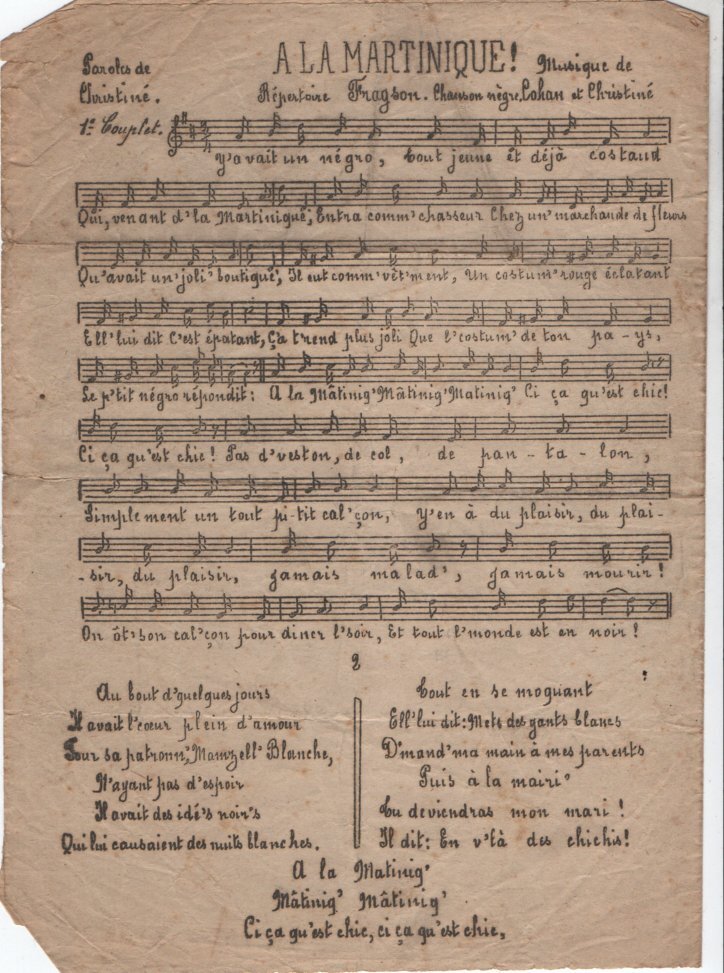 A LA MARTINIQUE!
Paroles de Christiné.
Musique de
Répertoire Fragson. Chanson nègre, Cohan et Christiné
1er Couplet.
Y'avait un négro, tout jeune et déjà costaud
Qui, venant d'la Martinique, Entra comm' chasseur Chez un' marchande de fleurs
Qu'avait un' joli' boutique, Il eut comm' vêt'ment, Un costum' rouge éclatant
Ell' lui dit C'est épatant, Ça t'rend plus joli Que l'costum' de ton pa-ys,
Le p'tit négro répondit: A la Mâtinig' Mâtinig' Matinig' Ci ça qu'est chic!
Ci ça qu'est chic! Pas d'veston, de col, de pan-ta-lon,
Simplement un tout pi-tit cal'çon, Y'en à du plaisir, du plai-
-sir, du plaisir, jamais malad', jamais mourir!
On ôt' son cal'çon pour diner l'soir, Et tout l'monde est en noir!
2
Au bout d'quelques jours
Il avait l'cœur plein d'amour
Pour sa patronn', Mamzell' Blanche,
N'ayant pas d'espoir
Il avait des idé's noir's
Qui lui causaient des nuits blanches.
Tout en se moquant
Ell' lui dit: Mets des gants blancs
D'mand' ma main à mes parents
Puis à la mairi'
Tu deviendras mon mari!
Il dit: En v'là des chichis!
A la Matinig'
Mâtinig' Mâtinig'
Ci ça qu'est chic, ci ça qu'est chic,